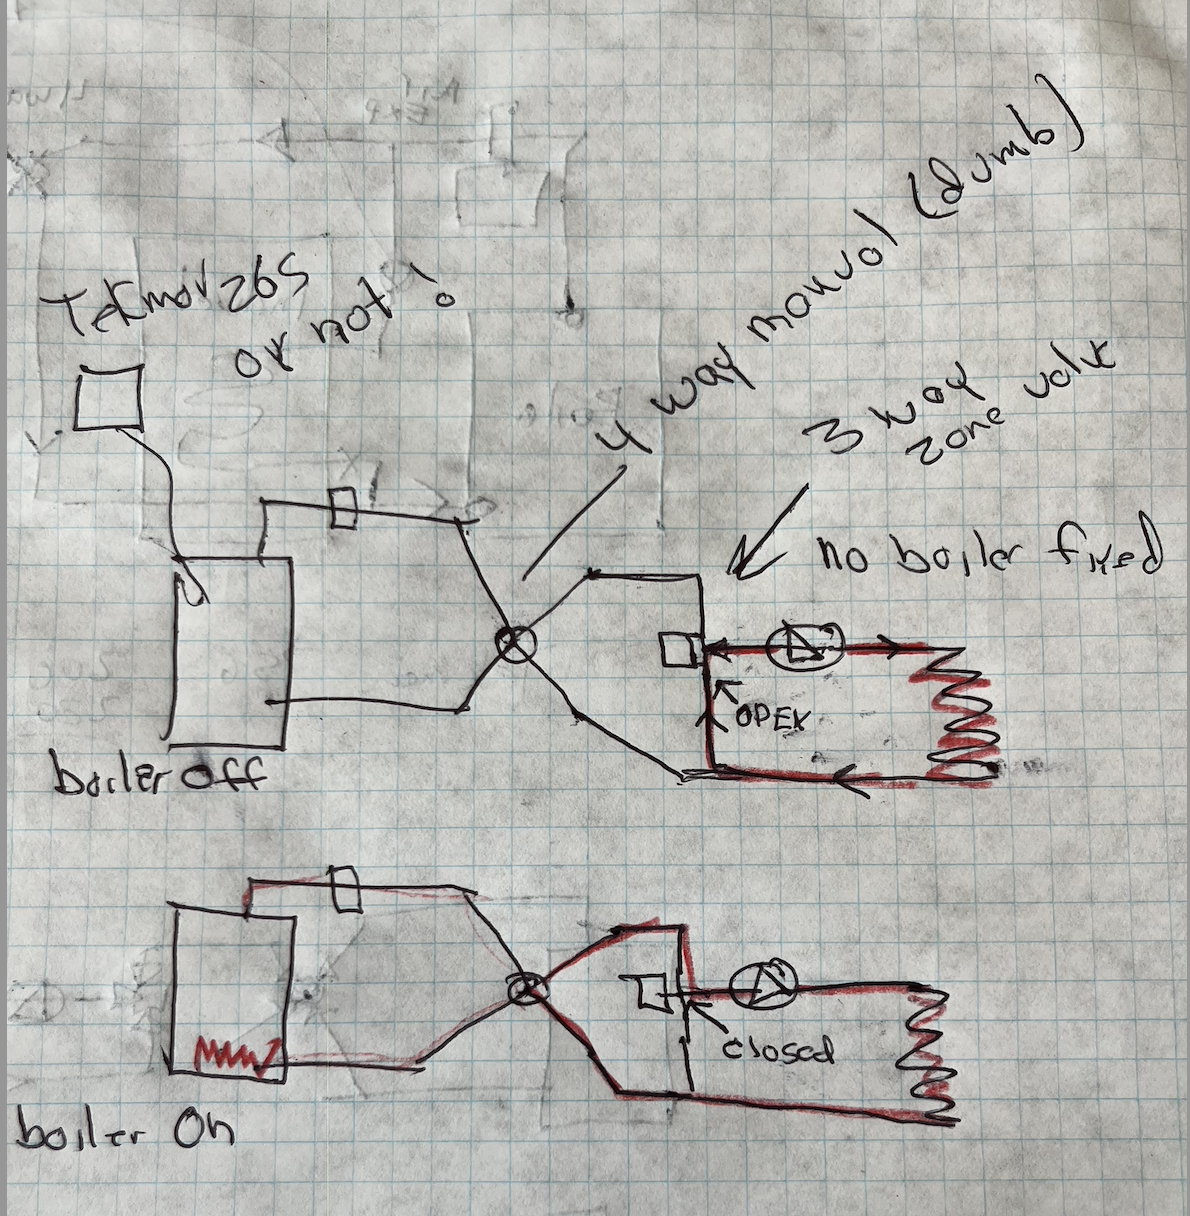 Tekmar 265
or not!
4 way manual (dumb)
3 way
zone valve
no boiler fixed
OPEN
boiler Off
closed
boiler On